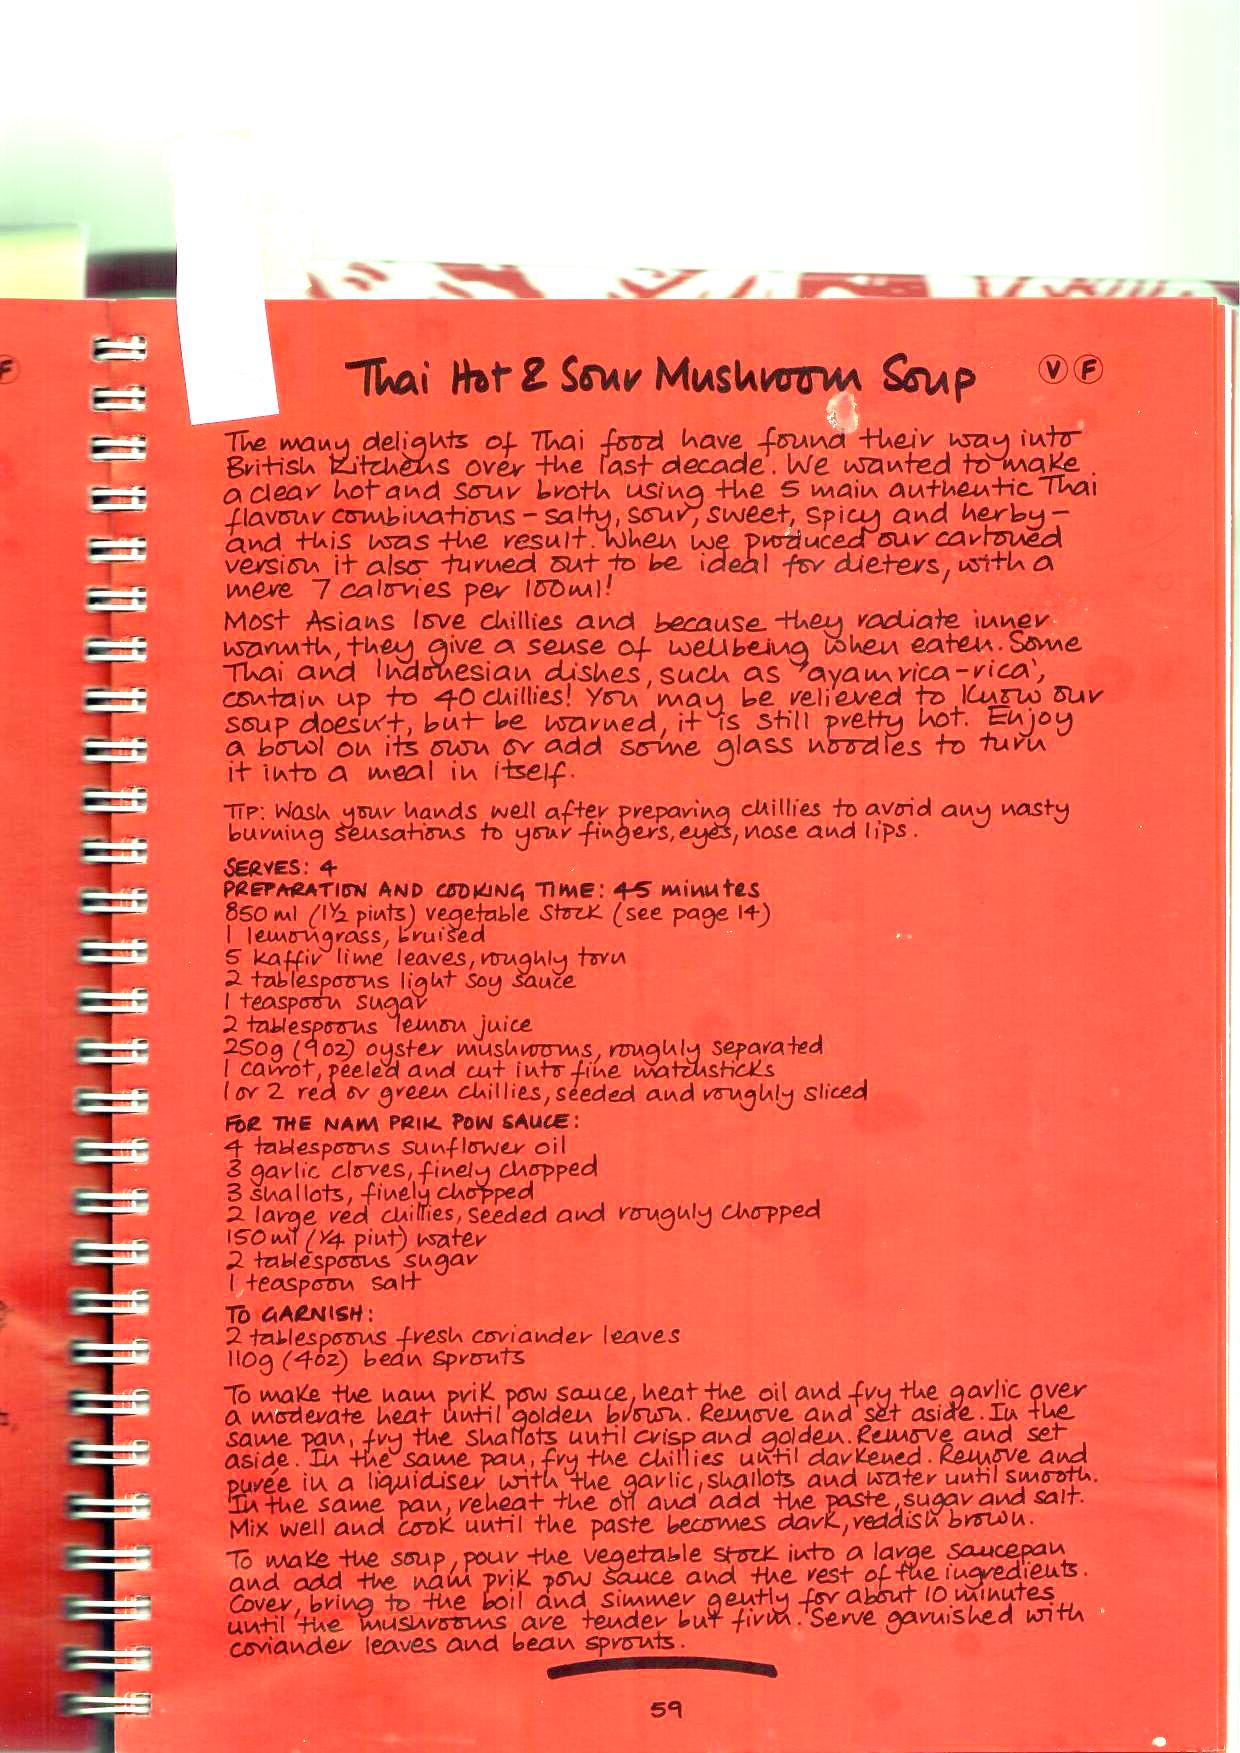 F
Thai Hot & Sour Mushroom Soup V F
The many delights of Thai food have found their way into
British kitchens over the last decade. We wanted to make
a clear hot and sour broth using the 5 main authentic Thai
flavour combinations – salty, sour, sweet, spicy and herby –
and this was the result. When we produced our cartoned
version it also turned out to be ideal for dieters, with a
mere 7 calories per 100ml!
Most Asians love chillies and because they radiate inner
warmth, they give a sense of wellbeing when eaten. Some
Thai and Indonesian dishes, such as 'ayam rica-rica',
contain up to 40 chillies! You may be relieved to know our
soup doesn't, but be warned, it is still pretty hot. Enjoy
a bowl on its own or add some glass noodles to turn
it into a meal in itself.
TIP: Wash your hands well after preparing chillies to avoid any nasty
burning sensations to your fingers, eyes, nose and lips.
SERVES: 4
PREPARATION AND COOKING TIME: 45 minutes
850 ml (1½ pints) vegetable stock (see page 14)
1 lemongrass, bruised
5 kaffir lime leaves, roughly torn
2 tablespoons light soy sauce
1 teaspoon sugar
2 tablespoons lemon juice
250g (9oz) oyster mushrooms, roughly separated
1 carrot, peeled and cut into fine matchsticks
1 or 2 red or green chillies, seeded and roughly sliced
FOR THE NAM PRIK POW SAUCE:
4 tablespoons sunflower oil
3 garlic cloves, finely chopped
3 shallots, finely chopped
2 large red chillies, seeded and roughly chopped
150 ml (¼ pint) water
2 tablespoons sugar
1 teaspoon salt
TO GARNISH:
2 tablespoons fresh coriander leaves
110g (4oz) bean sprouts
To make the nam prik pow sauce, heat the oil and fry the garlic over
a moderate heat until golden brown. Remove and set aside. In the
same pan, fry the shallots until crisp and golden. Remove and set
aside. In the same pan, fry the chillies until darkened. Remove and
purée in a liquidiser with the garlic, shallots and water until smooth.
In the same pan, reheat the oil and add the paste, sugar and salt.
Mix well and cook until the paste becomes dark, reddish brown.
To make the soup, pour the vegetable stock into a large saucepan
and add the nam prik pow sauce and the rest of the ingredients.
Cover, bring to the boil and simmer gently for about 10 minutes
until the mushrooms are tender but firm. Serve garnished with
coriander leaves and bean sprouts.
59